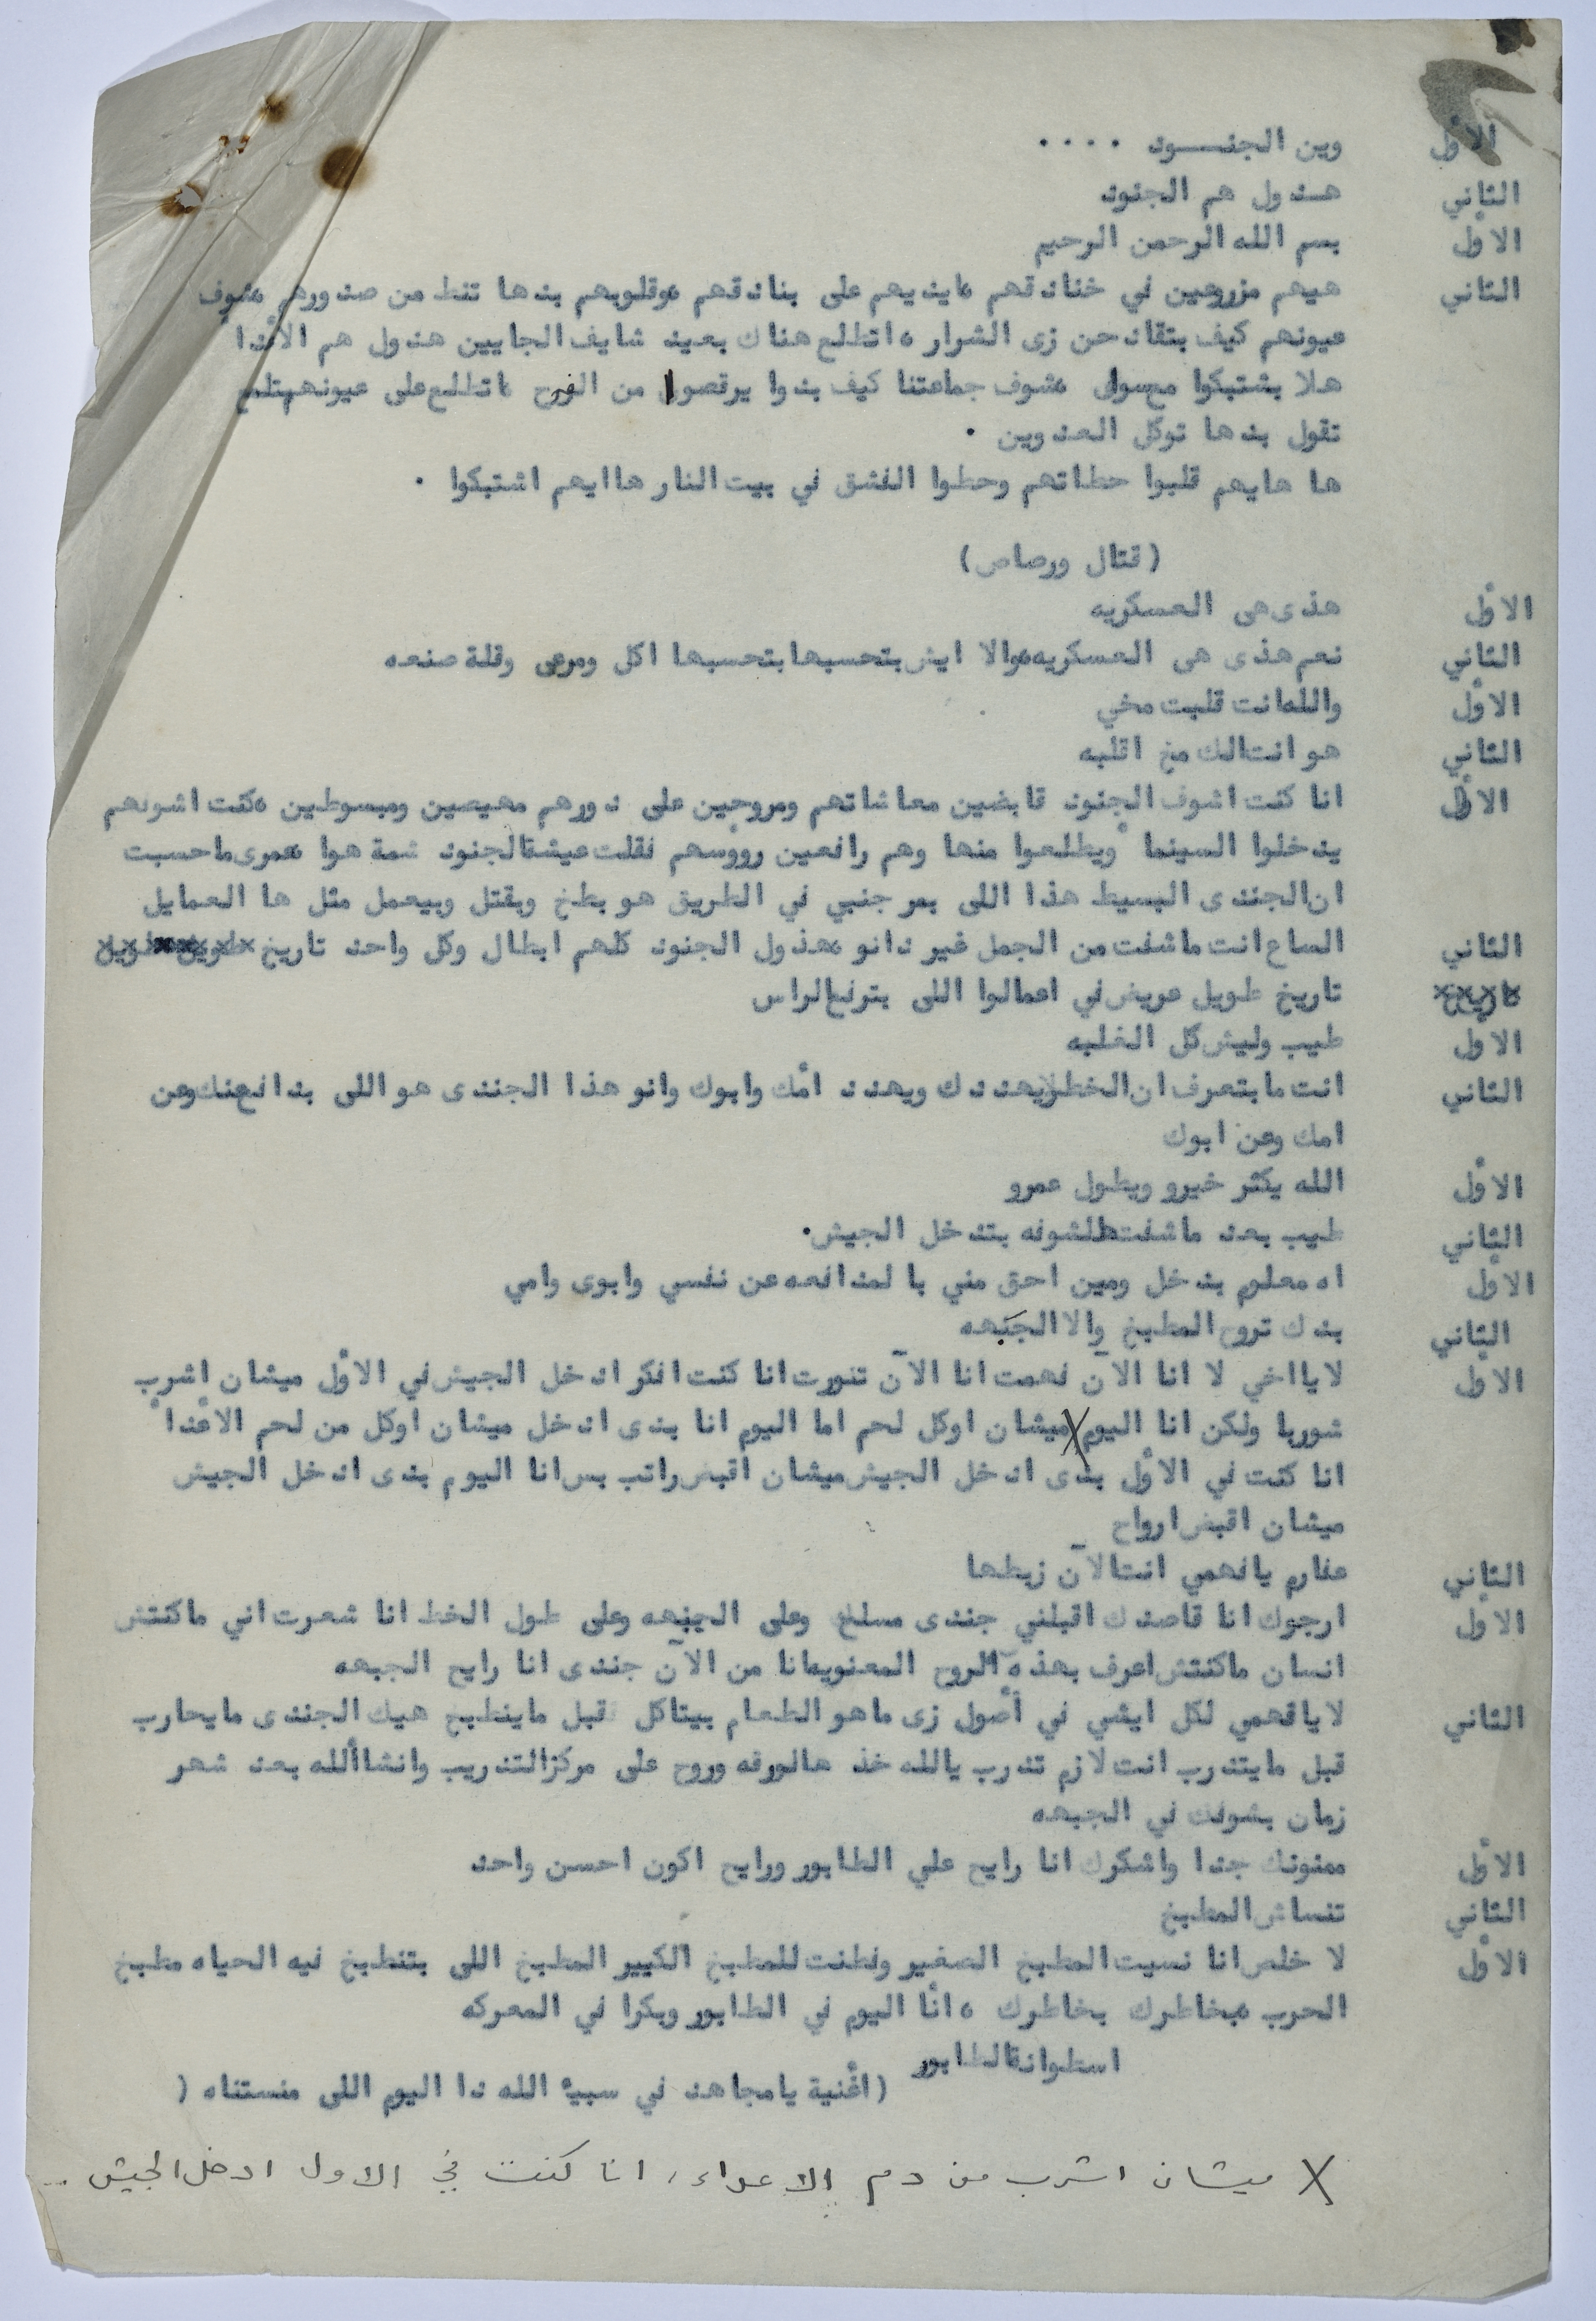 الاول وين الجنـــود ....
الثاني هـدول هم الجنود
الاول بسم الله الرحمن الرحيم
الثاني هيهم مزروعين في خنادقهم ،ايديهم على بنادقهم ،وقلوبهم بدها تنط من صدورهم ،شوف
عيونهم كيف بتقادحن زى الشرار ، اتطلع هناك بعيد شايف الجايين هدول هم الأعدا
هلا بشتبكوا مع ،شوف جماعتنا كيف بدوا يرقصوا من الفرح ،اتطلع على عيونهم
تقول بدها توكل العدوين .
ها هايهم قلبوا حطاتهم وحطوا الفشق في بيت النار هاايهم اشتبكوا .
(قتال ورصاص)
الاول هذى هى العسكريه
الثاني نعم هذى هى العسكريه ،والا ايش بتحسبها بتحسبها اكل ومرعى وقلة صنعه
الاول والله انت قلبت مخي
الثاني هو انت الك مخ اقلبه
الاول انا كنت اشوف الجنود قابضين معاشاتهم ومروحين على دورهم مهيصين ومبسوطين ،كنت اشوفهم
يدخلوا السينما ويطلعوا منها وهم رافعين رؤوسهم فقلت عيشة الجنود شمة هوا ،عمرى ماحسبت
ان الجندى البسيط هذا اللى بمر جنبي في الطريق هو بطخ وبقتل وبيعمل مثل ها العمايل
الثاني الساع انت ماشفت من الجمل غير دانو ،هذول الجنود كلهم ابطال وكل واحد تاريخ
تاريخ طويل عريض في اعمالوا اللى بترفع الراس
الاول طيب وليش كل الغلبه
الثاني انت مابتعرف ان الخطر يهددك ويهدد امك وابوك وانو هذا الجندى هو اللى بدافع عنك وعن
امك وعن ابوك
الاول الله يكثر خيرو ويطول عمرو
الثاني طيب بعد ماشفت هلشوفه بتدخل الجيش.
الاول اه معلوم بدخل ومين احق مني بالمدافعه عن نفسي وابوى وامي
الثاني بدك تروح المطبخ والا الجبهه
الاول لا يااخي لا انا الآن فهمت انا الآن تنورت انا كنت افكر ادخل الجيش في الاول ميشان اشرب
شوربا ولكن انا اليوم X ميشان اوكل لحم اما اليوم انا بدى ادخل ميشان اوكل من لحم الاعدا
انا كنت في الاول بدى ادخل الجيش ميشان اقبض راتب بس انا اليوم بدى ادخل الجيش
ميشان اقبض ارواح
الثاني عفارم يافهمي انت الآن زبطها
الاول ارجوك انا قاصدك اقبلني جندى مسلح وعلى الجبهه وعلى طول الخط انا شعرت اني ماكنتش
انسان ماكنتش اعرف بهذه الروح المعنويه انا من الآن جندى انا رايح الجبهه
الثاني لا يافهمي لكل ايشي في أصول زى ماهو الطعام بيتاكل قبل ماينطبخ هيك الجندى مايحارب
قبل مايتدرب انت لازم تدرب يالله خذ هالورقه وروح على مركز التدريب وانشاألله بعد شهر
زمان بشوفك في الجبهه
الاول ممنونك جدا واشكرك انا رايح علي الطابور ورايح اكون احسن واحد
الثاني تنساش المطبخ
الاول لا خلص انا نسيت المطبخ الصغير وفطنت للمطبخ الكبير المطبخ اللى بتنطبخ فيه الحياه مطبخ
الحرب ،بخاطرك بخاطرك ، انا اليوم في الطابور وبكرا في المعركه
اسطوانة الطابور
(اغنية يامجاهد في سبيل الله دا اليوم اللى منستناه (
X ميشان اشرب من دم الاعداء ، انا كنت في الاول ادخل الجيش ..